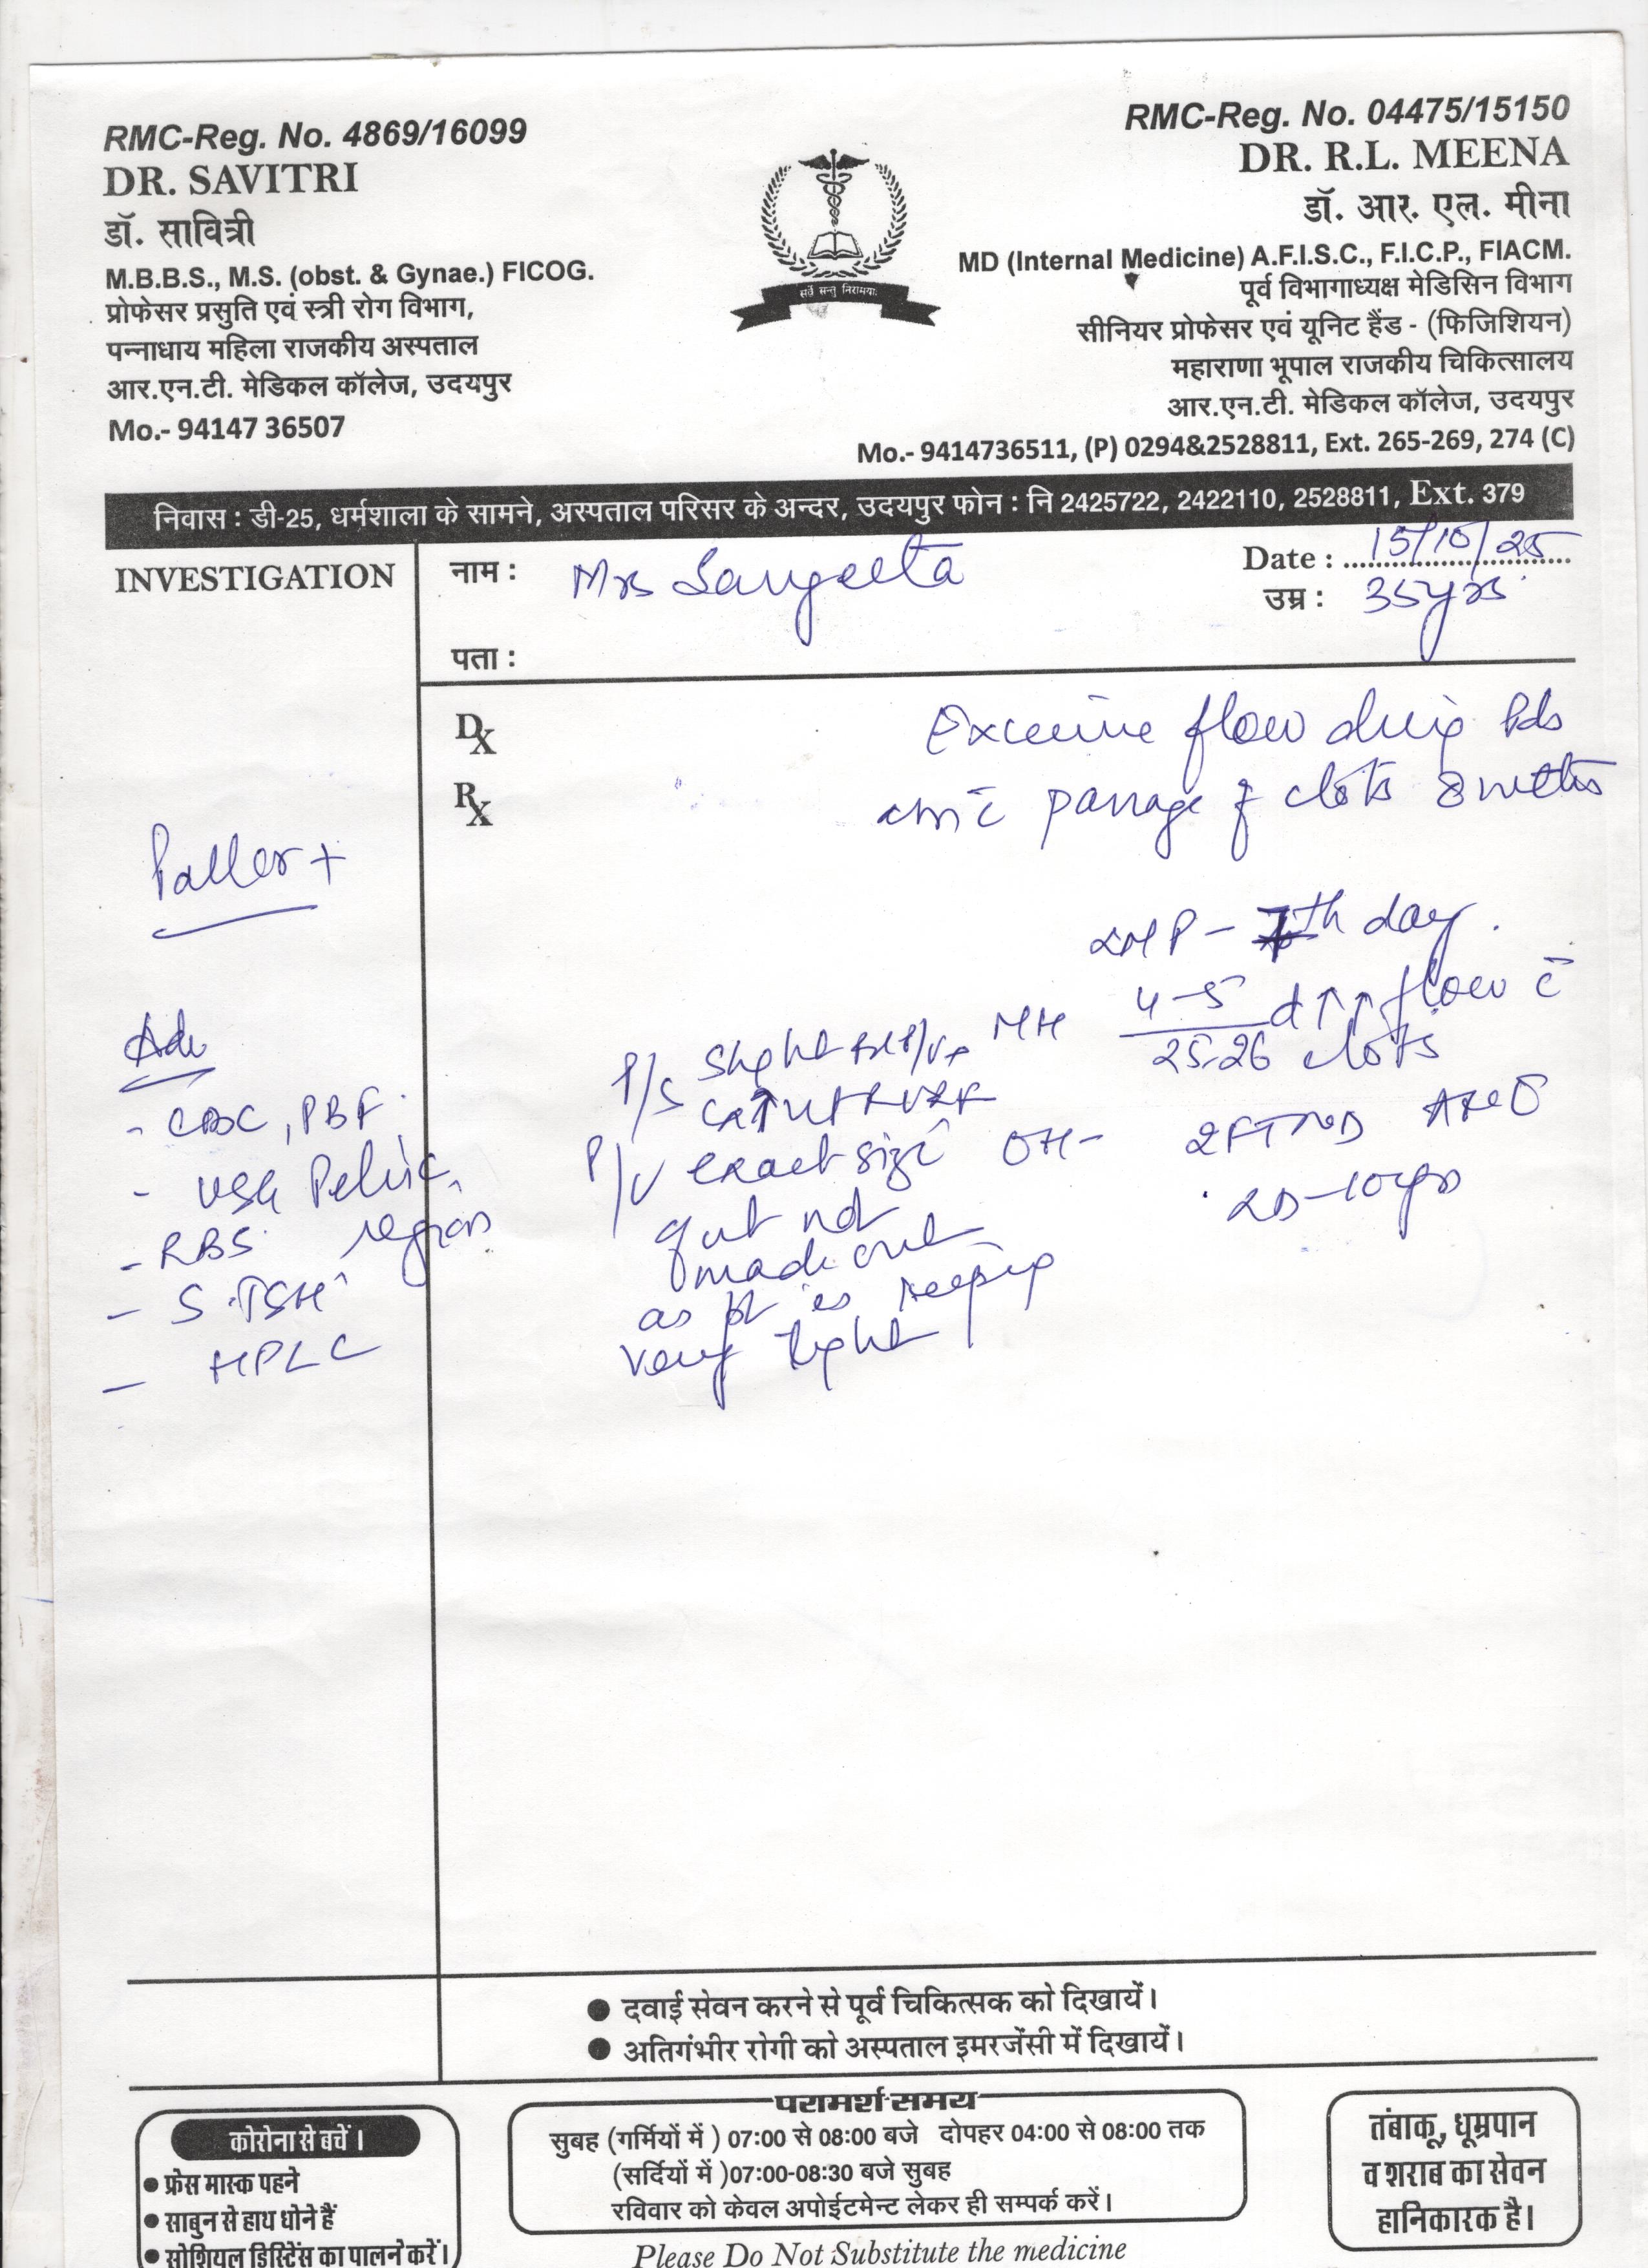 RMC-Reg. No. 4869/16099
DR. SAVITRI
डॉ. सावित्री
M.B.B.S., M.S. (obst. & Gynae.) FICOG.
प्रोफेसर प्रसुति एवं स्त्री रोग विभाग,
पन्नाधाय महिला राजकीय अस्पताल
आर.एन.टी. मेडिकल कॉलेज, उदयपुर
Mo.- 94147 36507
सर्वे सन्तु निरामयाः
RMC-Reg. No. 04475/15150
DR. R.L. MEENA
डॉ. आर. एल. मीना
MD (Internal Medicine) A.F.I.S.C., F.I.C.P., FIACM.
पूर्व विभागाध्यक्ष मेडिसिन विभाग
सीनियर प्रोफेसर एवं यूनिट हैंड - (फिजिशियन)
महाराणा भूपाल राजकीय चिकित्सालय
आर.एन.टी. मेडिकल कॉलेज, उदयपुर
Mo.- 9414736511, (P) 0294&2528811, Ext. 265-269, 274 (C)
निवास : डी-25, धर्मशाला के सामने, अस्पताल परिसर के अन्दर, उदयपुर फोन : नि 2425722, 2422110, 2528811, Ext. 379
INVESTIGATION
नाम : Mrs Sangeeta
Date : 15/10/25
उम्र : 35yrs
पता :
Dx
Rx
Excessive flow during Pds
passage of clots 8 mths
Pallor +
LMP - 7th day.
MH 4-5/25-26 d ↑↑ flow c̄ clots
P/S Slight
P/V exact size
of ut not
made out
as pt is keeping
very tight
OH- 2FTND
LD-10yrs
Adv
- CBC, PBF
- USG Pelvic
region
- RBS
- S.TSH
- HPLC
● दवाई सेवन करने से पूर्व चिकित्सक को दिखायें।
● अतिगंभीर रोगी को अस्पताल इमरजेंसी में दिखायें।
कोरोना से बचें।
● फ्रेस मास्क पहने
● साबुन से हाथ धोने हैं
● सोशियल डिस्टेंस का पालन करें।
परामर्श समय
सुबह (गर्मियों में ) 07:00 से 08:00 बजे दोपहर 04:00 से 08:00 तक
(सर्दियों में )07:00-08:30 बजे सुबह
रविवार को केवल अपोईटमेन्ट लेकर ही सम्पर्क करें।
तंबाकू, धूम्रपान
व शराब का सेवन
हानिकारक है।
Please Do Not Substitute the medicine